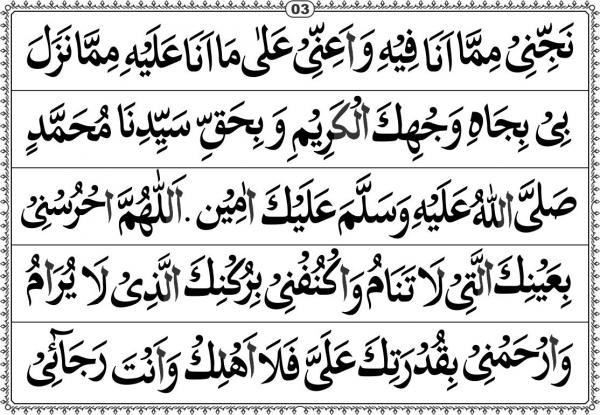 03
نَجِّنِیْ مِمَّا اَنَا فِیْهِ وَاَعِنِّیْ عَلٰی مَا اَنَا عَلَیْهِ مِمَّا نَزَلَ
بِیْ بِجَاهِ وَجْهِكَ الْكَرِیْمِ وَ بِحَقِّ سَیِّدِنَا مُحَمَّدٍ
صَلَّی اللّٰهُ عَلَیْهِ وَسَلَّمَ عَلَیْكَ اٰمِیْن .اَللّٰهُمَّ احْرُسْنِیْ
بِعَیْنِكَ الَّتِیْ لَا تَنَامُ وَاكْنُفْنِیْ بِرُكْنِكَ الَّذِیْ لَا یُرَامُ
وَارْحَمْنِیْ بِقُدْرَتِكَ عَلَیَّ فَلَا اَهْلِكُ وَاَنْتَ رَجَآئِیْ